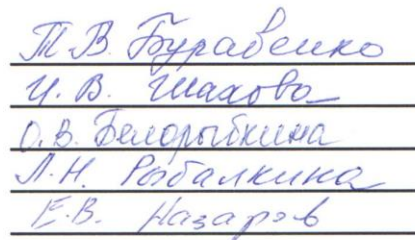 Т.В. Буравенко
И.В. Шахова
О.В. Белорыбкина
Л.Н. Рыбалкина
Е.В. Назаров